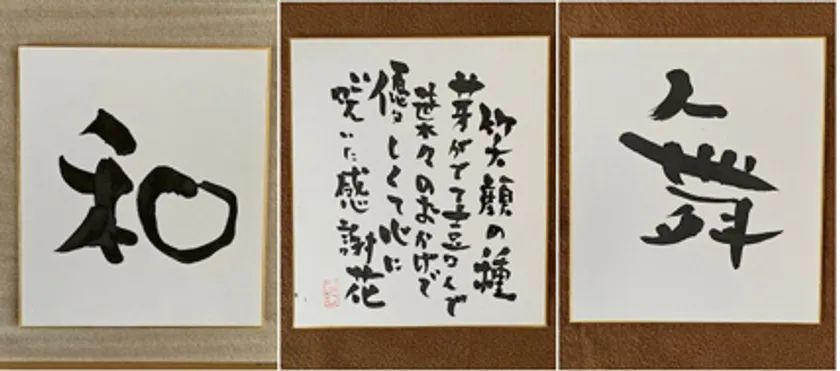 和
笑顔の種
芽がでて喜こんで
木々のおかげで
優しくて心に
咲いた感謝花
舞